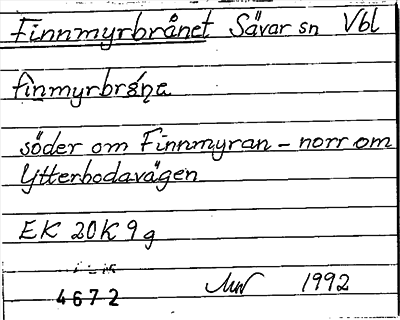 Finnmyrbrånet Sävar sn Vbl
söder om Finnmyran - norr om
Ytterbodavägen
EK 20K 9g
4672 1992